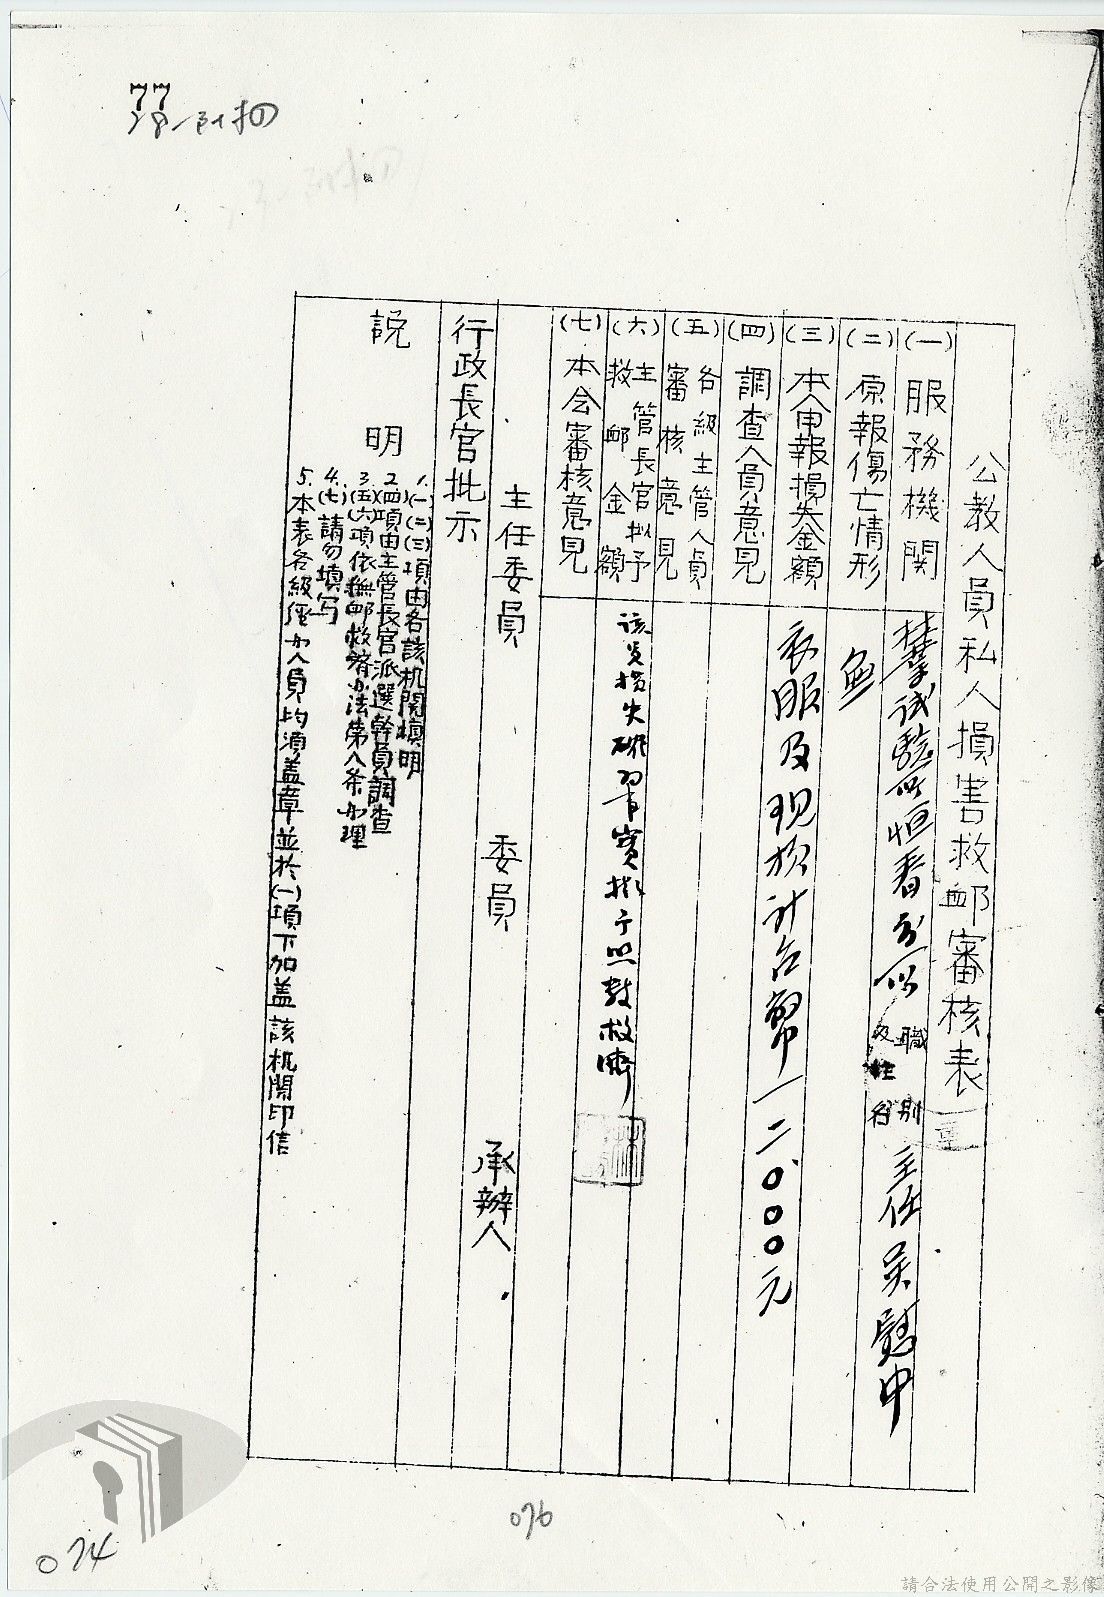 77
28-附扣
公教人員私人損害救卹審核表
(一)服務機關
林業試驗所恒春分所
職別及姓名
主任 吳慰中
(二)原報傷亡情形
無
(三)本人申報損失金額
衣服及現款計台幣一二0000元
(四)調查人員意見
(五)各級主管人員審核意見
(六)主管長官拟予救卹金額
該員損失確實擬予照數救濟
(七)本会審核意見
主任委員 委員 承辦人
行政長官批示
說明
1.(一)(二)(三)項由各該机関填明
2.(四)項由主管長官派選幹員調查
3.(五)(六)項依撫卹救濟办法第八条办理
4.(七)請勿填写
5.本表各級經办人員均須盖章並於(一)項下加盖該机関印信
076
074
請合法使用公開之影像